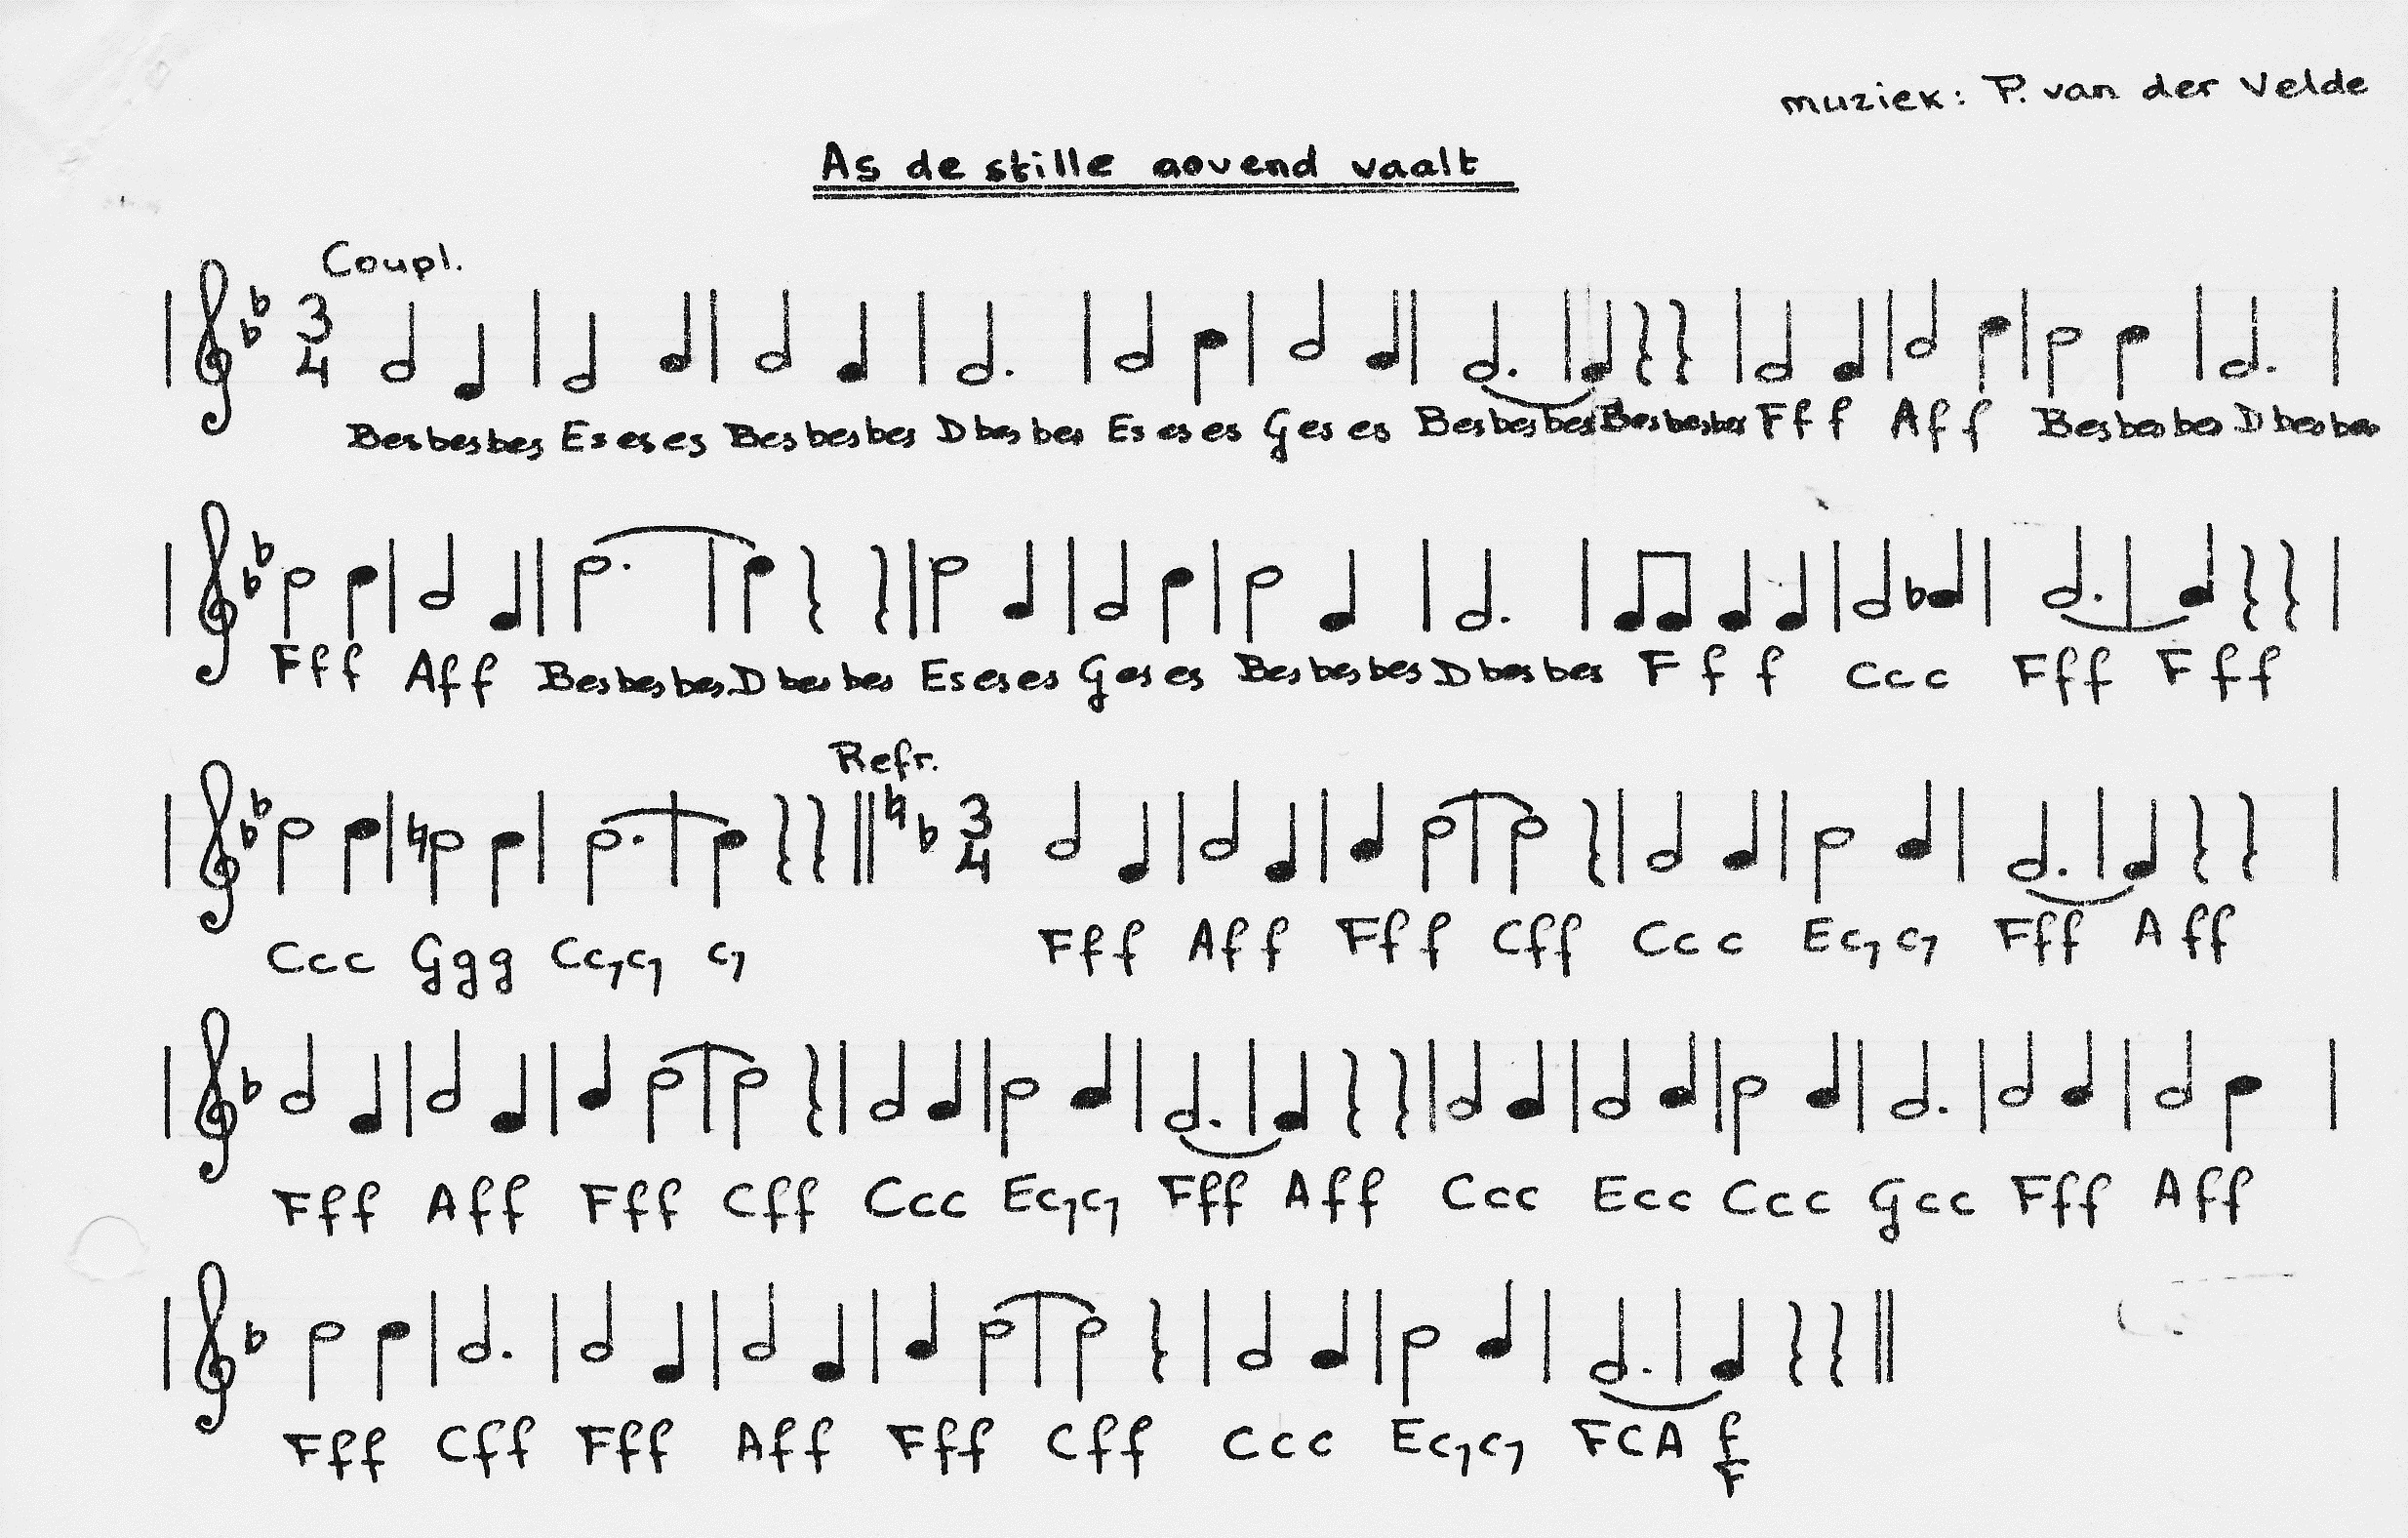 muziek: P. van der Velde
As de stille aovend vaalt
Coupl.
3
4
Besbesbes Es es es Bes bes bes D bes bes Es es es G es es Bes bes bes Besbesbes F f f A f f Bes bes bes D bes bes
F f f A f f Bes bes bes D bes bes Es es es G es es Bes bes bes D bes bes F f f C c c F f f F f f
Refr.
3
4
C c c G g g C c7 c7 c7 F f f A f f F f f C f f C c c E c7 c7 F f f A f f
F f f A f f F f f C f f C c c E c7 c7 F f f A f f C c c E c c C c c G c c F f f A f f
F f f C f f F f f A f f F f f C f f C c c E c7 c7 F C A f
F